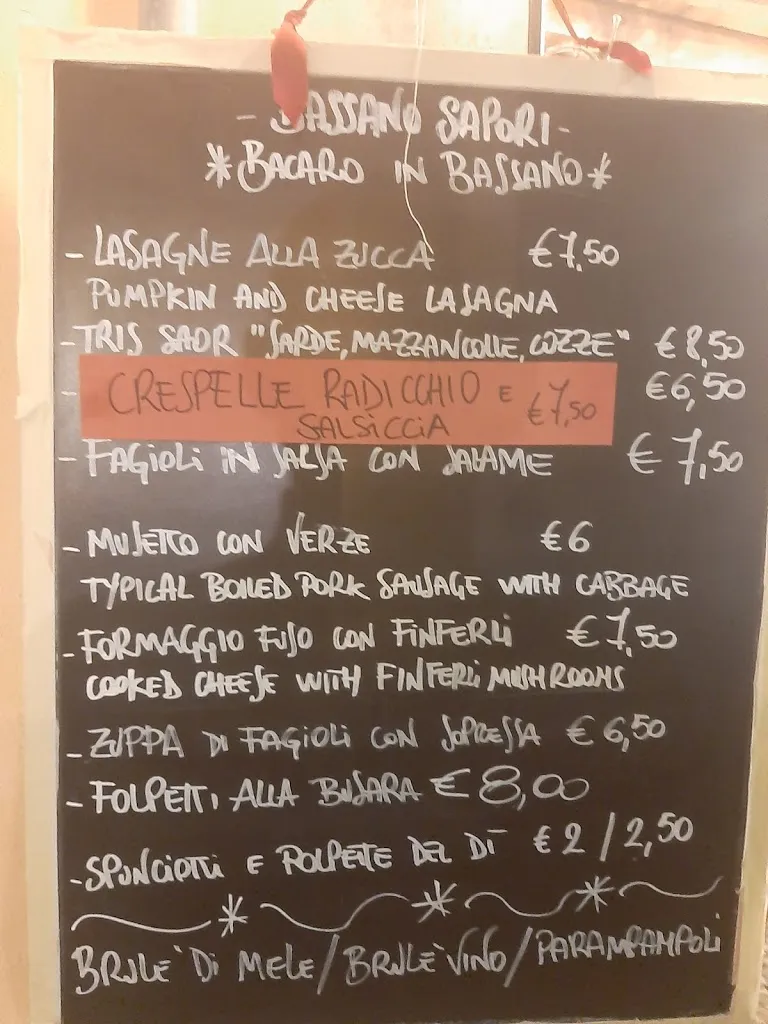 - BASSANO SAPORI -
* BACARO IN BASSANO *
- LASAGNE ALLA ZUCCA €7,50
PUMPKIN AND CHEESE LASAGNA
- TRIS SAOR "SARDE, MAZZANCOLLE, COZZE" €8,50
- CRESPELLE RADICCHIO E €7,50 €6,50
SALSICCIA
- FAGIOLI IN SALSA CON SALAME €7,50
- MUSETTO CON VERZE €6
TYPICAL BOILED PORK SAUSAGE WITH CABBAGE
- FORMAGGIO FUSO CON FINFERLI €7,50
COOKED CHEESE WITH FINFERLI MUSHROOMS
- ZUPPA DI FAGIOLI CON SOPRESSA €6,50
- FOLPETTI ALLA BUSARA €8,00
- SPUNCIOTTI E POLPETTE DEL DÌ €2/2,50
BRULE' DI MELE/BRULE' VINO/PARAMPAMPOLI